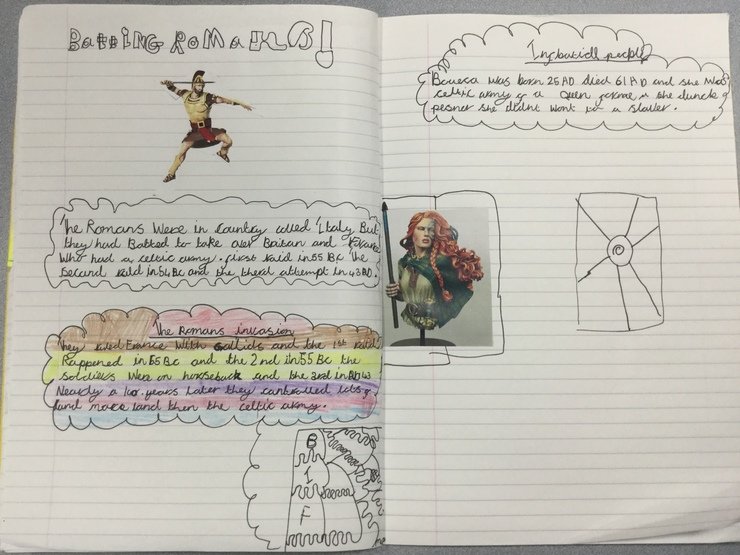 Batting Romans!
The Romans Were in country called 'Italy. But
they had Batted to take over Baitan and
Who had a celtic army. first Raid in 55 Bc The
Second Raid in 54 Bc and the therd attempt in 43 AD.
The Romans invasion
They ruled France With and the 1st Raid
Rappened in 55 B.c and the 2nd in 55 Bc the
Soldiers Were on horseback and the 3rd in AD 43
Nearly a 100 years later they cantrolled lots of
land more land then the celtic army.
B
I
F
people
Boueca was born 25 AD died 61 AD and she was
celtic army of a Queen she
pesner she didnt wont to a Slater.